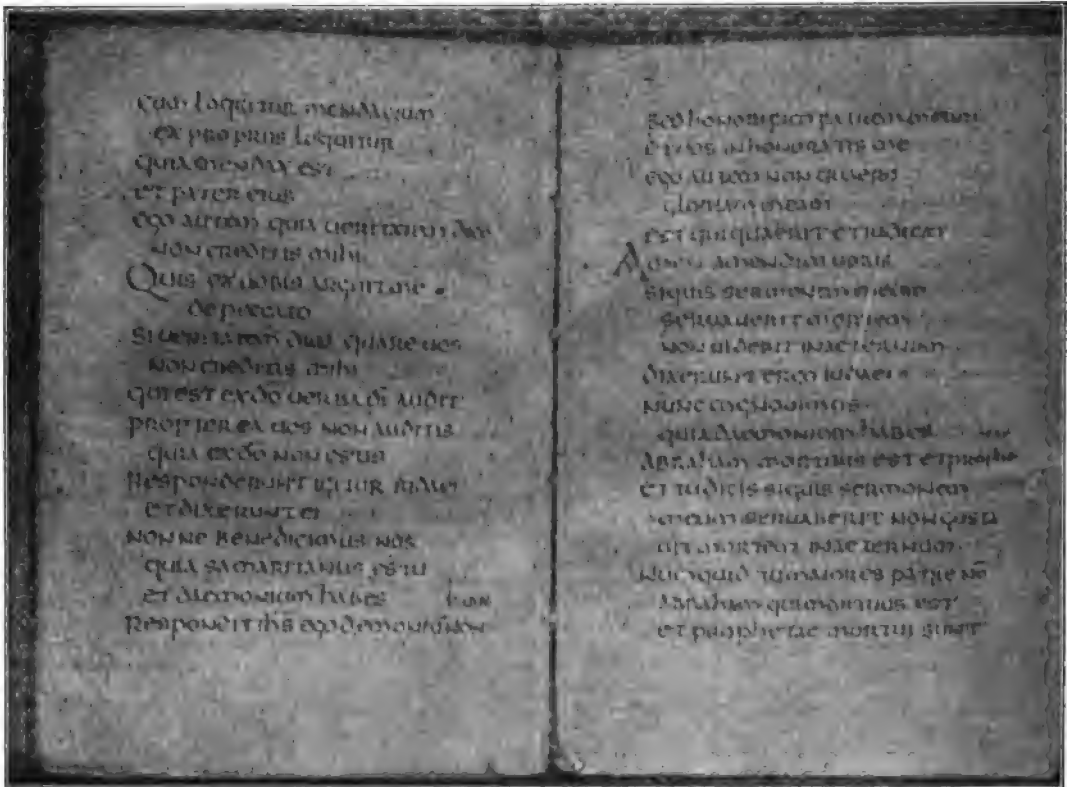 Cum loquitur mendacium
ex propriis loquitur
quia mendax est
et pater eius
ego autem quia ueritatem dico
non creditis mihi
Quis ex uobis arguit me
de peccato
Si ueritatem dico quare uos
non creditis mihi
qui est ex dō uerba dī audit
propter ea uos non auditis
quia ex dō non estis
Responderunt igitur iudaei
et dixerunt ei
Non ne benedicimus nos
quia samaritanus es tu
et daemonium habes
Respondit ihs ego demonium non
sed honorifico patrem meum
et uos inhonoratis me
ego autem non quaero
gloriam meam
est qui quaerit et iudicat
Amen amen dico uobis
siquis sermonem meum
seruauerit mortem
non uidebit in aeternum
dixerunt ergo iudaei
nunc cognouimus
quia daemonium habes
Abraham mortuus est et prophe
et tu dicis siquis sermonem
meum seruauerit non gusta
bit mortem in aeternum
Numquid tu maior es patre nō
Abraham qui mortuus est
et prophetae mortui sunt